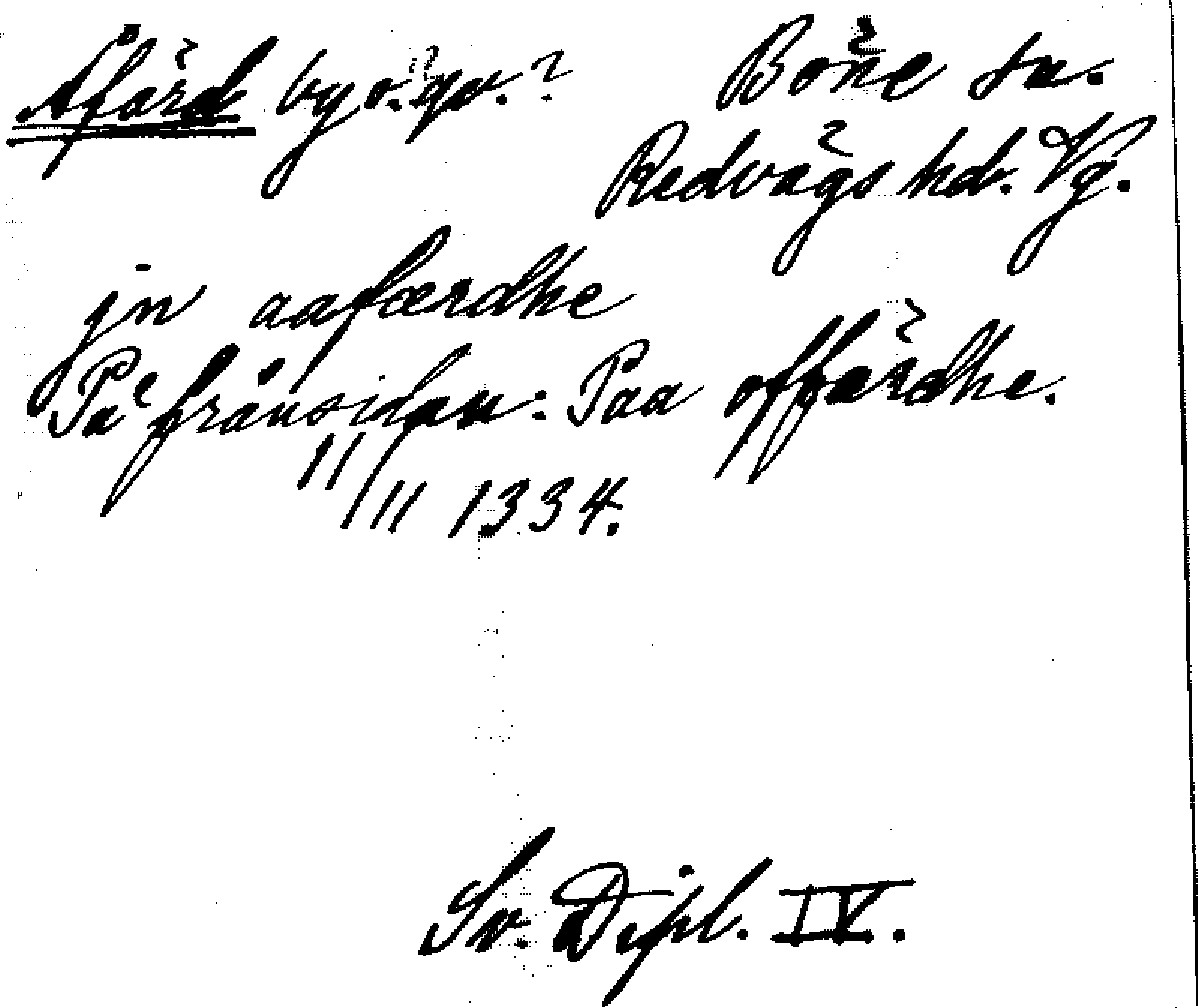 Åfärd by o. qv.? Böne sn.
Redvägs hd. Vg.
jn aafærdhe
På frånsidan: Paa offärdhe.
11/11 1334.
Sv. Dipl. IV.